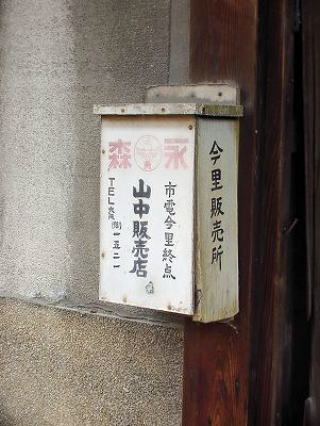 森永
市電今里終点
山中販売店
TEL大阪(98)一五二一
今里販売所